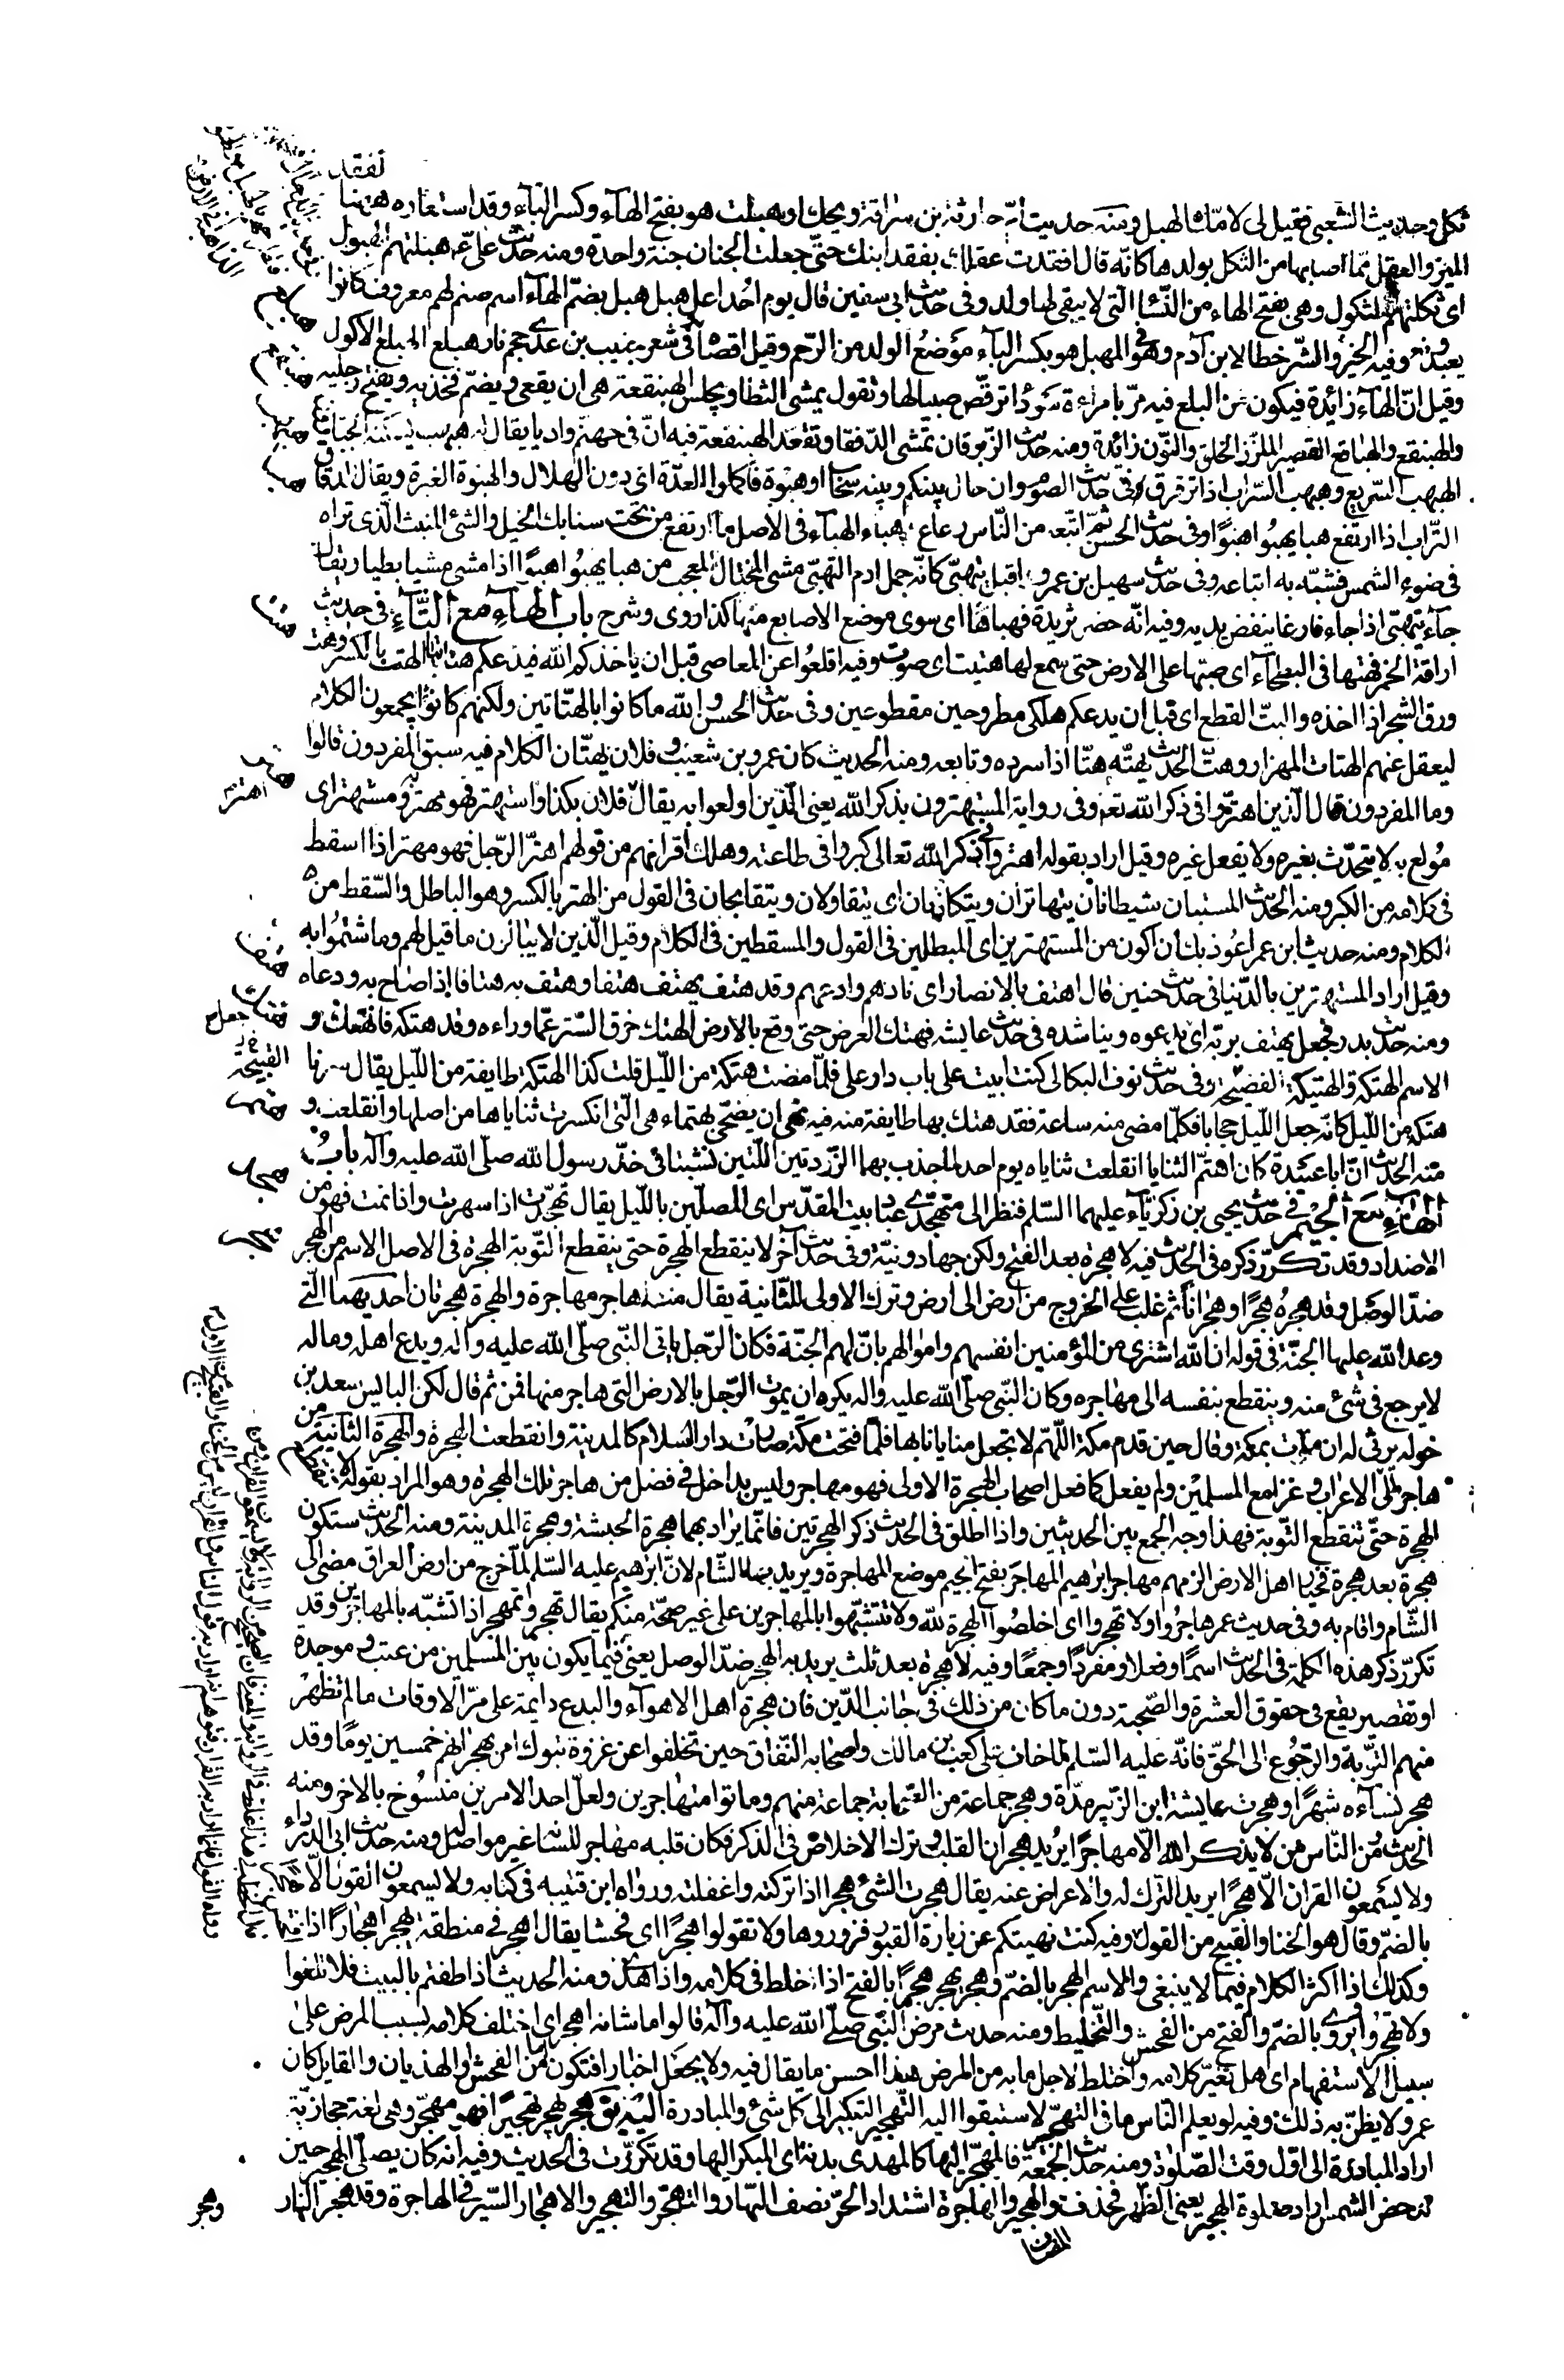 تفقد
ثكل وحديث الشعبي فقيل لي لامك الهبل ومنه حديث ام حارثة بن سراقة ويحك اوهبلت هو بفتح الهاء وكسر الباء وقد استعاره ههنا
الميز والعقل مما اصابها من الثكل بولدها كانه قال افقدت عقلك بفقد ابنك حتى جعلت الجنان جنة واحدة ومنه حديث علي ع هبلتهم الهبول
اي ثكلتهم الثكول وهي بفتح الهاء من النساء التي لا يبقى لها ولد وفي حديث ابي سفين قال يوم احد اعل هبل هبل بضم الهاء اسم صنم لهم معروف كانوا
يعبدونه وفيه الخير والشر خطا لابن آدم وهو في المهبل هو بكسر الباء موضع الولد من الرحم وقيل اقصاه في شعر بن عدي حجم نار هبلع الهبلع الاكول
وقيل ان الهاء زائدة فيكون من البلع فيه مر بامراءة سوداء ترقص صبيا لها وتقول يمشي الثطا ويجلس الهبنقعة هي ان يقعي ويضم فخذيه ويفتح رجليه
والهبنقع والهباقع القصير الملزز الخلق والنون زائدة ومنه حديث الزبرقان تمشي الدفقا وتقعد الهبنقعة فيه ان في جهنم واديا يقال له هبهب يسكنه الجبارون
الهبهب السريع وهبهب السراب اذا ترقرق في حديث الصوم وان حال بينكم وبينه سحاب او هبوة فاكملوا العدة اي دون الهلال والهبوة الغبرة ويقال لدقاق
التراب اذا ارتفع هبا يهبوا هبوا وفي حديث الحسن ثم اتبعه من الناس رعاع هباء الهباء في الاصل ما ارتفع من تحت سنابك الخيل والشئ المنبث الذي تراه
في ضوء الشمس فشبه به اتباعه وفي حديث سهيل بن عمرو اقبل يتهبى كانه جمل ادم التهبي مشي المختال المعجب من هبا يهبوا هبوا اذا مشى مشيا بطيا ويقال
جآء يتهبى اذا جاء فارغا ينفض يديه وفيه انه حضر ثريدة فهباها اي سوى موضع الاصابع منها كذا روى وشرح باب الهاء مع التآء في حديث
اراقة الخمر فهتها في البطحآء اي صبها على الارض حتى سمع لها هتيت اي صوت وفيه اقلعوا عن المعاصي قبل ان ياخذكم الله فيدعكم هتا بتا الهت الكسر وهت
ورق الشجر اذا اخذه والبت القطع اي قبل ان يدعكم هلكى مطروحين مقطوعين وفي حديث الحسن والله ما كانوا بالهتاتين ولكنهم كانوا يجمعون الكلام
ليعقل عنهم الهتات المهزار وهت الحديث يهته هتا اذا سرده وتابعه ومنه الحديث كان عمرو بن شعيب وفلان يهتان الكلام فيه سبق المفردون قالوا
وما المفردون قال الذين اهتروا في ذكر الله تع وفي رواية المستهترون بذكر الله يعني الذين اولعوا به يقال فلان بكذا واستهتر فهو مهتر به ومستهتر اي
مولع به لا يتحدث بغيره ولا يفعل غيره وقيل اراد بقوله اهتروا في ذكر الله تعالى كبروا في طاعته وهلك اقرانهم من قولهم اهتر الرجل فهو مهتر اذا اسقط
في كلامه من الكبر ومنه الحديث المستبان شيطانان يتهاتران ويتكاذبان اي يتقاولان ويتقابحان في القول من الهتر بالكسر وهو الباطل والسقط من
الكلام ومنه حديث ابن عمر اعوذ بك ان اكون من المستهترين اي المبطلين في القول والمسقطين في الكلام وقيل الذين لا يبالون ما قيل لهم وما شتموا به
وقيل اراد المستهترين بالدنيا في حديث حنين قال اهتف بالانصار اي نادهم وادعهم وقد هتف يهتف هتفا وهتف به هتافا اذا صاح به ودعاه
ومنه حديث بدر فجعل يهتف بربه اي يدعوه ويناشده في حديث عايشه فهتك العرض حتى وقع بالارض الهتك خرق الستر عما وراءه وقد هتكه فانهتك و
الاسم الهتكة والهتيكة الفضيحة وفي حديث نوف البكالي كنت ابيت على باب دار علي فلما مضت هتكة من الليل قلت كذا الهتكة طايفة من الليل يقال سرنا
هتكة من الليل كانه جعل الليل حجابا فكلما مضى منه ساعة فقد هتك بها طايفة منه فيه نهى ان يضحى بهتماء هي التي انكسرت ثناياها من اصلها وانقلعت و
منه الحديث ان ابا عبيدة كان اهتم الثنايا انقلعت ثناياه يوم احد لما جذب بهما الزردتين اللتين نشبتا في خد رسول الله صلى الله عليه وآله باب
الهاء مع الجيم في حديث يحيى بن زكريآء عليهما السلم فنظر الى متهجدي عباد بيت المقدس اي المصلين بالليل يقال تهجدت اذا سهرت واذا نمت فهو من
الاضداد وقد تكرر ذكره في الحديث فيه لا هجرة بعد الفتح ولكن جهاد ونية وفي حديث آخر لا ينقطع الهجرة حتى ينقطع التوبة الهجرة في الاصل الاسم من الهجر
ضد الوصل وقد هجره هجرا وهجرانا ثم غلب على الخروج من ارض الى ارض وترك الاولى للثانية يقال منه هاجر مهاجرة والهجرة هجرتان احديهما التي
وعد الله عليها الجنة في قوله ان الله اشترى من المؤمنين انفسهم واموالهم بان لهم الجنة فكان الرجل ياتي النبي صلى الله عليه وآله ويدع اهله وماله
لا يرجع في شئ منه وينقطع بنفسه الى مهاجره وكان النبي صلى الله عليه وآله يكره ان يموت الرجل بالارض التي هاجر منها فمن ثم قال لكن البايس سعد بن
خوله يرثي له ان مات بمكة وقال حين قدم مكة اللهم لا تجعل منايانا بها فلما فتحت مكة صارت دار السلام كالمدينة وانقطعت الهجرة والهجرة الثانية من
هاجر من الاعراب وغزا مع المسلمين ولم يفعل كما فعل اصحاب الهجرة الاولى فهو مهاجر وليس بداخل في فضل من هاجر تلك الهجرة وهو المراد بقوله لا تنقطع
الهجرة حتى تنقطع التوبة فهذا وجه الجمع بين الحديثين واذا اطلق في الحديث ذكر الهجرتين فانما يراد بهما هجرة الحبشة وهجرة المدينة ومنه الحديث ستكون
هجرة بعد هجرة فخيار اهل الارض الزمهم مهاجر ابراهيم المهاجر بفتح الجيم موضع المهاجرة ويريد به الشام لان ابرهيم عليه السلم لما خرج من ارض العراق مضى الى
الشام واقام به وفي حديث عمر هاجروا ولا تهجروا اي اخلصوا الهجرة لله ولا تتشبهوا بالمهاجرين على غير صحة منكم يقال تهجر وتمهجر اذا تشبه بالمهاجرين وقد
تكرر ذكر هذه الكلمة في الحديث اسما وفعلا ومفردا وجمعا وفيه لا هجرة بعد ثلث يريد به الهجر ضد الوصل يعني فيما يكون بين المسلمين من عتب وموجدة
او تقصير يقع في حقوق العشرة والصحبة دون ما كان من ذلك في جانب الدين فان هجرة اهل الاهوآء والبدع دايمة على مر الاوقات ما لم تظهر
منهم التوبة والرجوع الى الحق فانه عليه السلم لما خاف على كعب بن مالك واصحابه النفاق حين تخلفوا عن غزوة تبوك امر بهجرانهم خمسين يوما وقد
هجر نساءه شهرا وهجرت عايشة ابن الزبير مدة وهجر جماعة من الصحابة جماعة منهم وماتوا متهاجرين ولعل احد الامرين منسوخ بالاخر ومنه
الحديث من الناس من لا يذكر الله الا مهاجرا يريد هجران القلب وترك الاخلاص في الذكر فكان قلبه مهاجر للسانه غير مواصل له ومنه حديث ابي الدرداء
ولا يسمعون القران الا هجرا يريد الترك له والاعراض عنه يقال هجرت الشئ هجرا اذا تركته واغفلته ورواه ابن قتيبه في كتابه ولا يسمعون القول الا هجرا
بالضم وقال هو الخنا والقبيح من القول وفيه كنت نهيتكم عن زيارة القبور فزوروها ولا تقولوا هجرا اي فحشا يقال اهجر في منطقه يهجر اهجارا اذا
وكذلك اذا اكثر الكلام فيما لا ينبغي والاسم الهجر بالضم وهجر يهجر هجرا بالفتح اذا خلط في كلامه واذا هذى ومنه الحديث اذا طفتم بالبيت فلا تلغوا
ولا تهجروا يروى بالضم والفتح من الفحش والتخليط ومنه حديث مرض النبي صلى الله عليه وآله قالوا ما شانه اهجر اي اختلف كلامه بسبب المرض على
سبيل الاستفهام اي هل تغير كلامه واختلط لاجل ما به من المرض هذا احسن ما يقال فيه ولا يجعل اخبارا فتكون من الفحش او الهذيان والقايل كان
عمر ولا يظن به ذلك وفيه لو يعلم الناس ما في التهجير لاستبقوا اليه التهجير التبكير الى كل شئ والمبادرة اليه يق هجر يهجر تهجيرا فهو مهجر وهي لغة حجازية
اراد المبادرة الى اول وقت الصلوة ومنه حديث الجمعة فالمهجر اليها كالمهدي بدنة اي المبكر اليها وقد تكررت في الحديث وفيه انه كان يصلي الهجير حين
تدحض الشمس اراد صلوة الهجير يعني الظهر فحذف والهجير والهاجرة اشتداد الحر نصف النهار والتهجر والتهجير والاهجار السير في الهاجرة وقد هجر النهار
وهجر